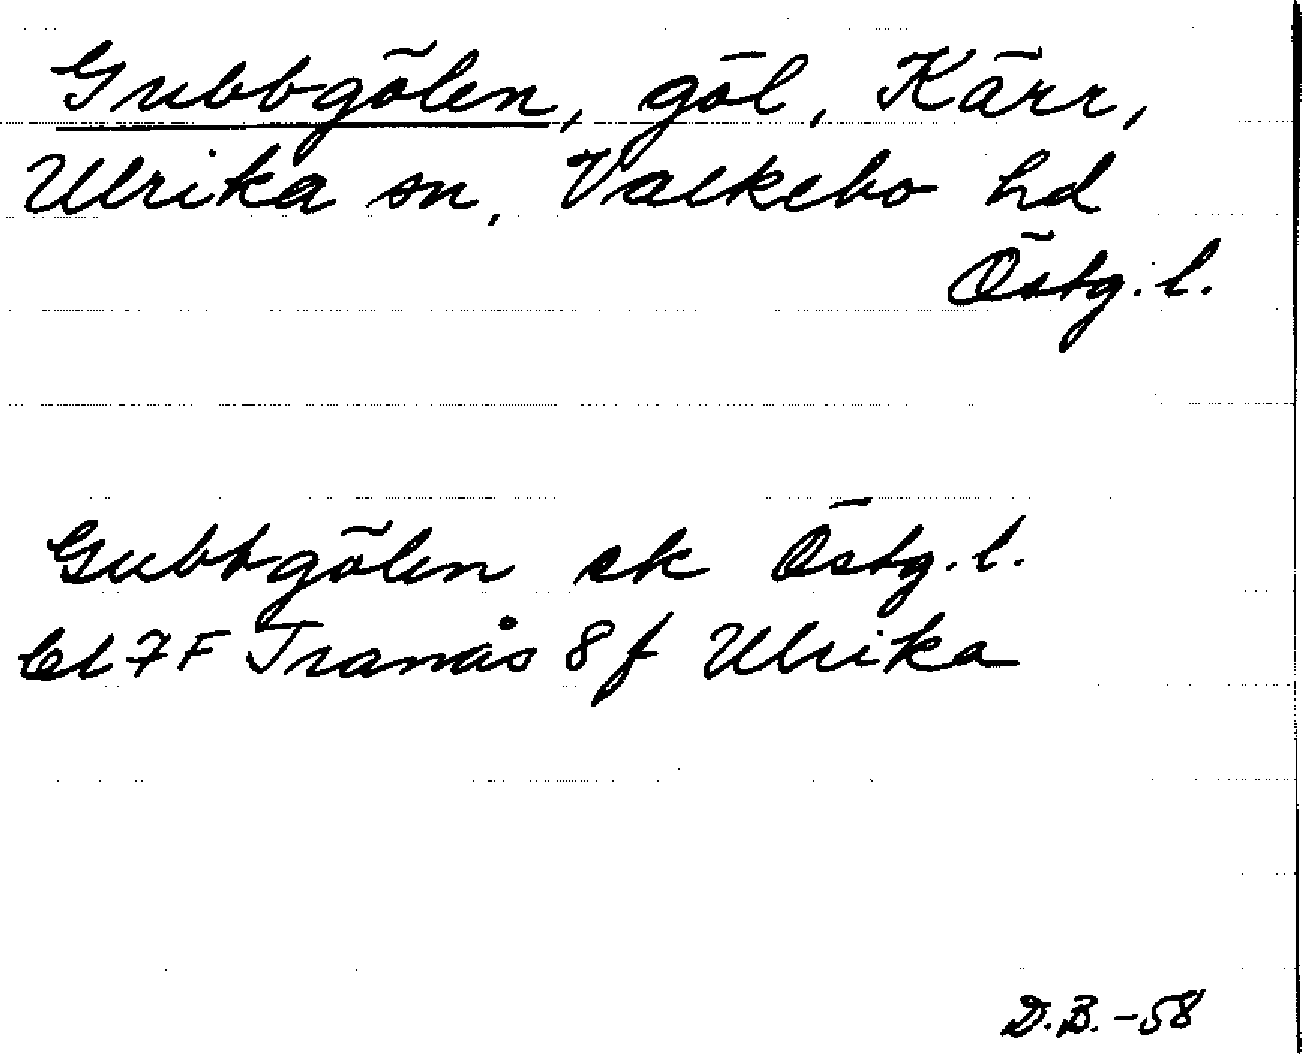 Gubbgölen, göl, Kärr,
Ulrika sn, Valkebo hd
Östg. l.
Gubbgölen ek Östg. l.
bl 7F Tranås 8 f Ulrika
D.B. -58